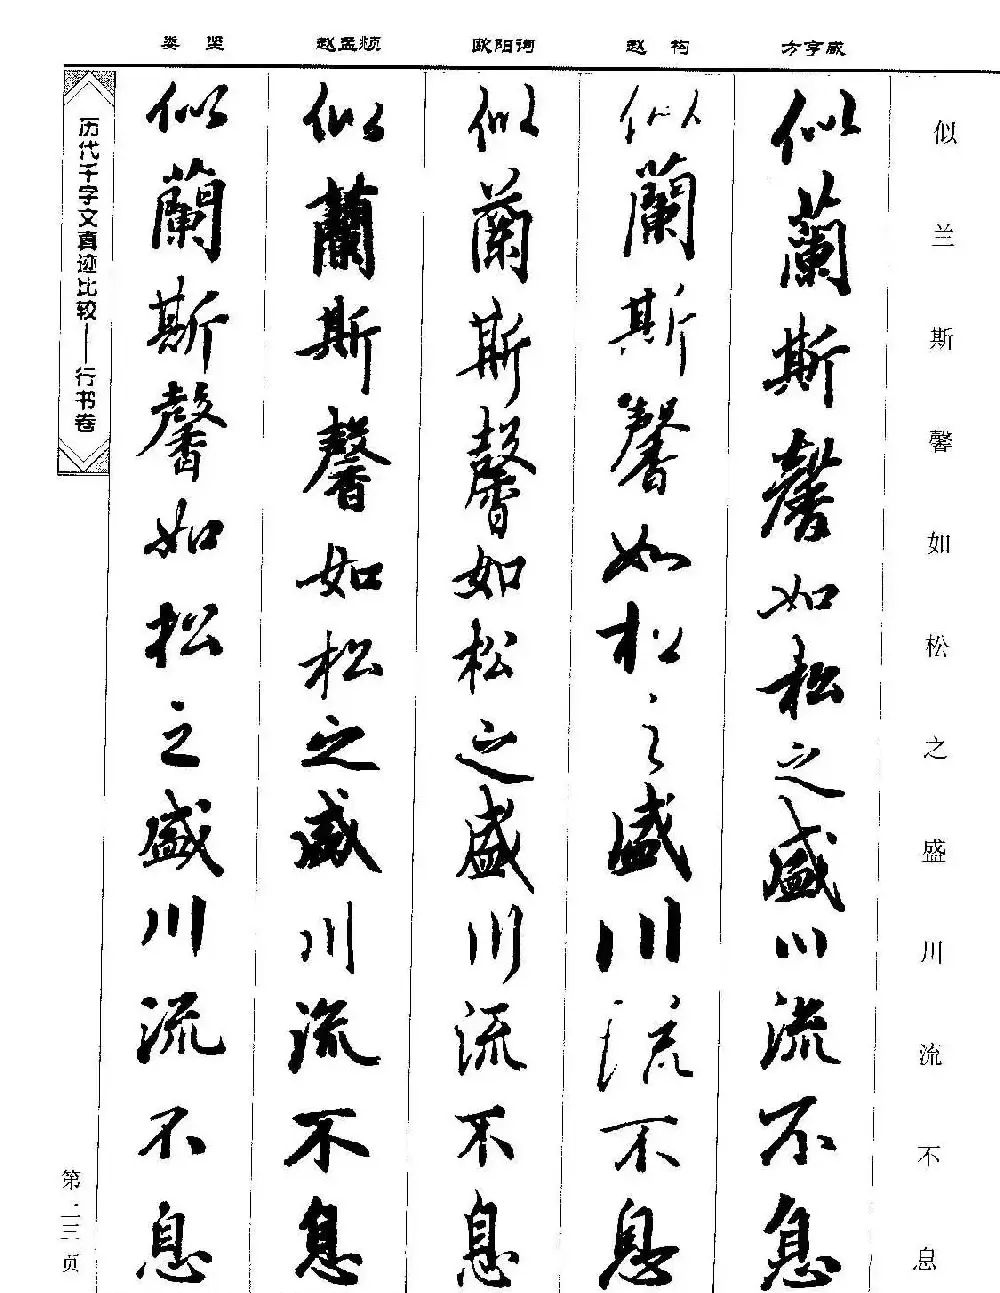 娄 坚
赵孟頫
欧阳询
赵 构
方亨咸
似兰斯馨如松之盛川流不息
似蘭斯馨如松之盛川流不息
似蘭斯馨如松之盛川流不息
似蘭斯馨如松之盛川流不息
似蘭斯馨如松之盛川流不息
似蘭斯馨如松之盛川流不息
历代千字文真迹比较——行书卷
第二三页